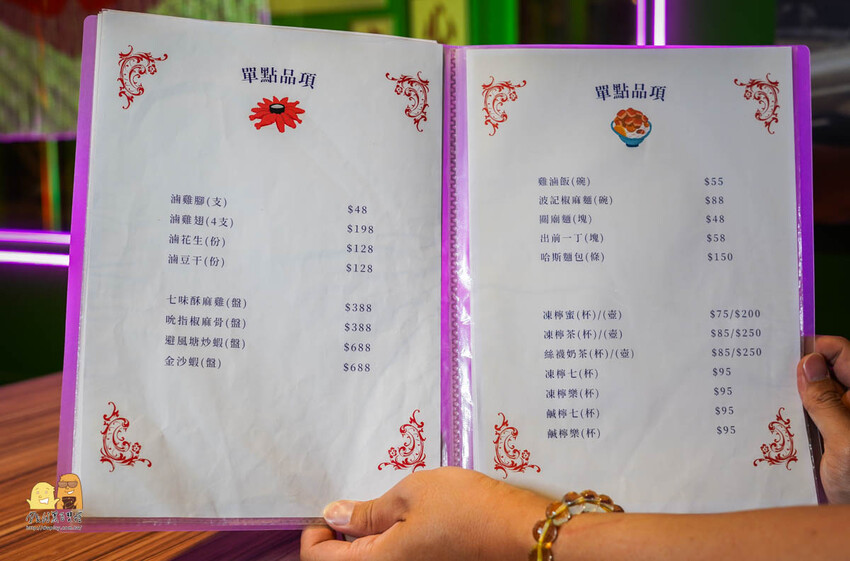 單點品項
滷雞腳(支) $48
滷雞翅(4支) $198
滷花生(份) $128
滷豆干(份) $128
七味酥麻雞(盤) $388
吮指椒麻骨(盤) $388
避風塘炒蝦(盤) $688
金沙蝦(盤) $688
單點品項
雞滷飯(碗) $55
波記椒麻麵(碗) $88
關廟麵(塊) $48
出前一丁(塊) $58
哈斯麵包(條) $150
凍檸蜜(杯)/(壺) $75/$200
凍檸茶(杯)/(壺) $85/$250
絲襪奶茶(杯)/(壺) $85/$250
凍檸七(杯) $95
凍檸樂(杯) $95
鹹檸七(杯) $95
鹹檸樂(杯) $95